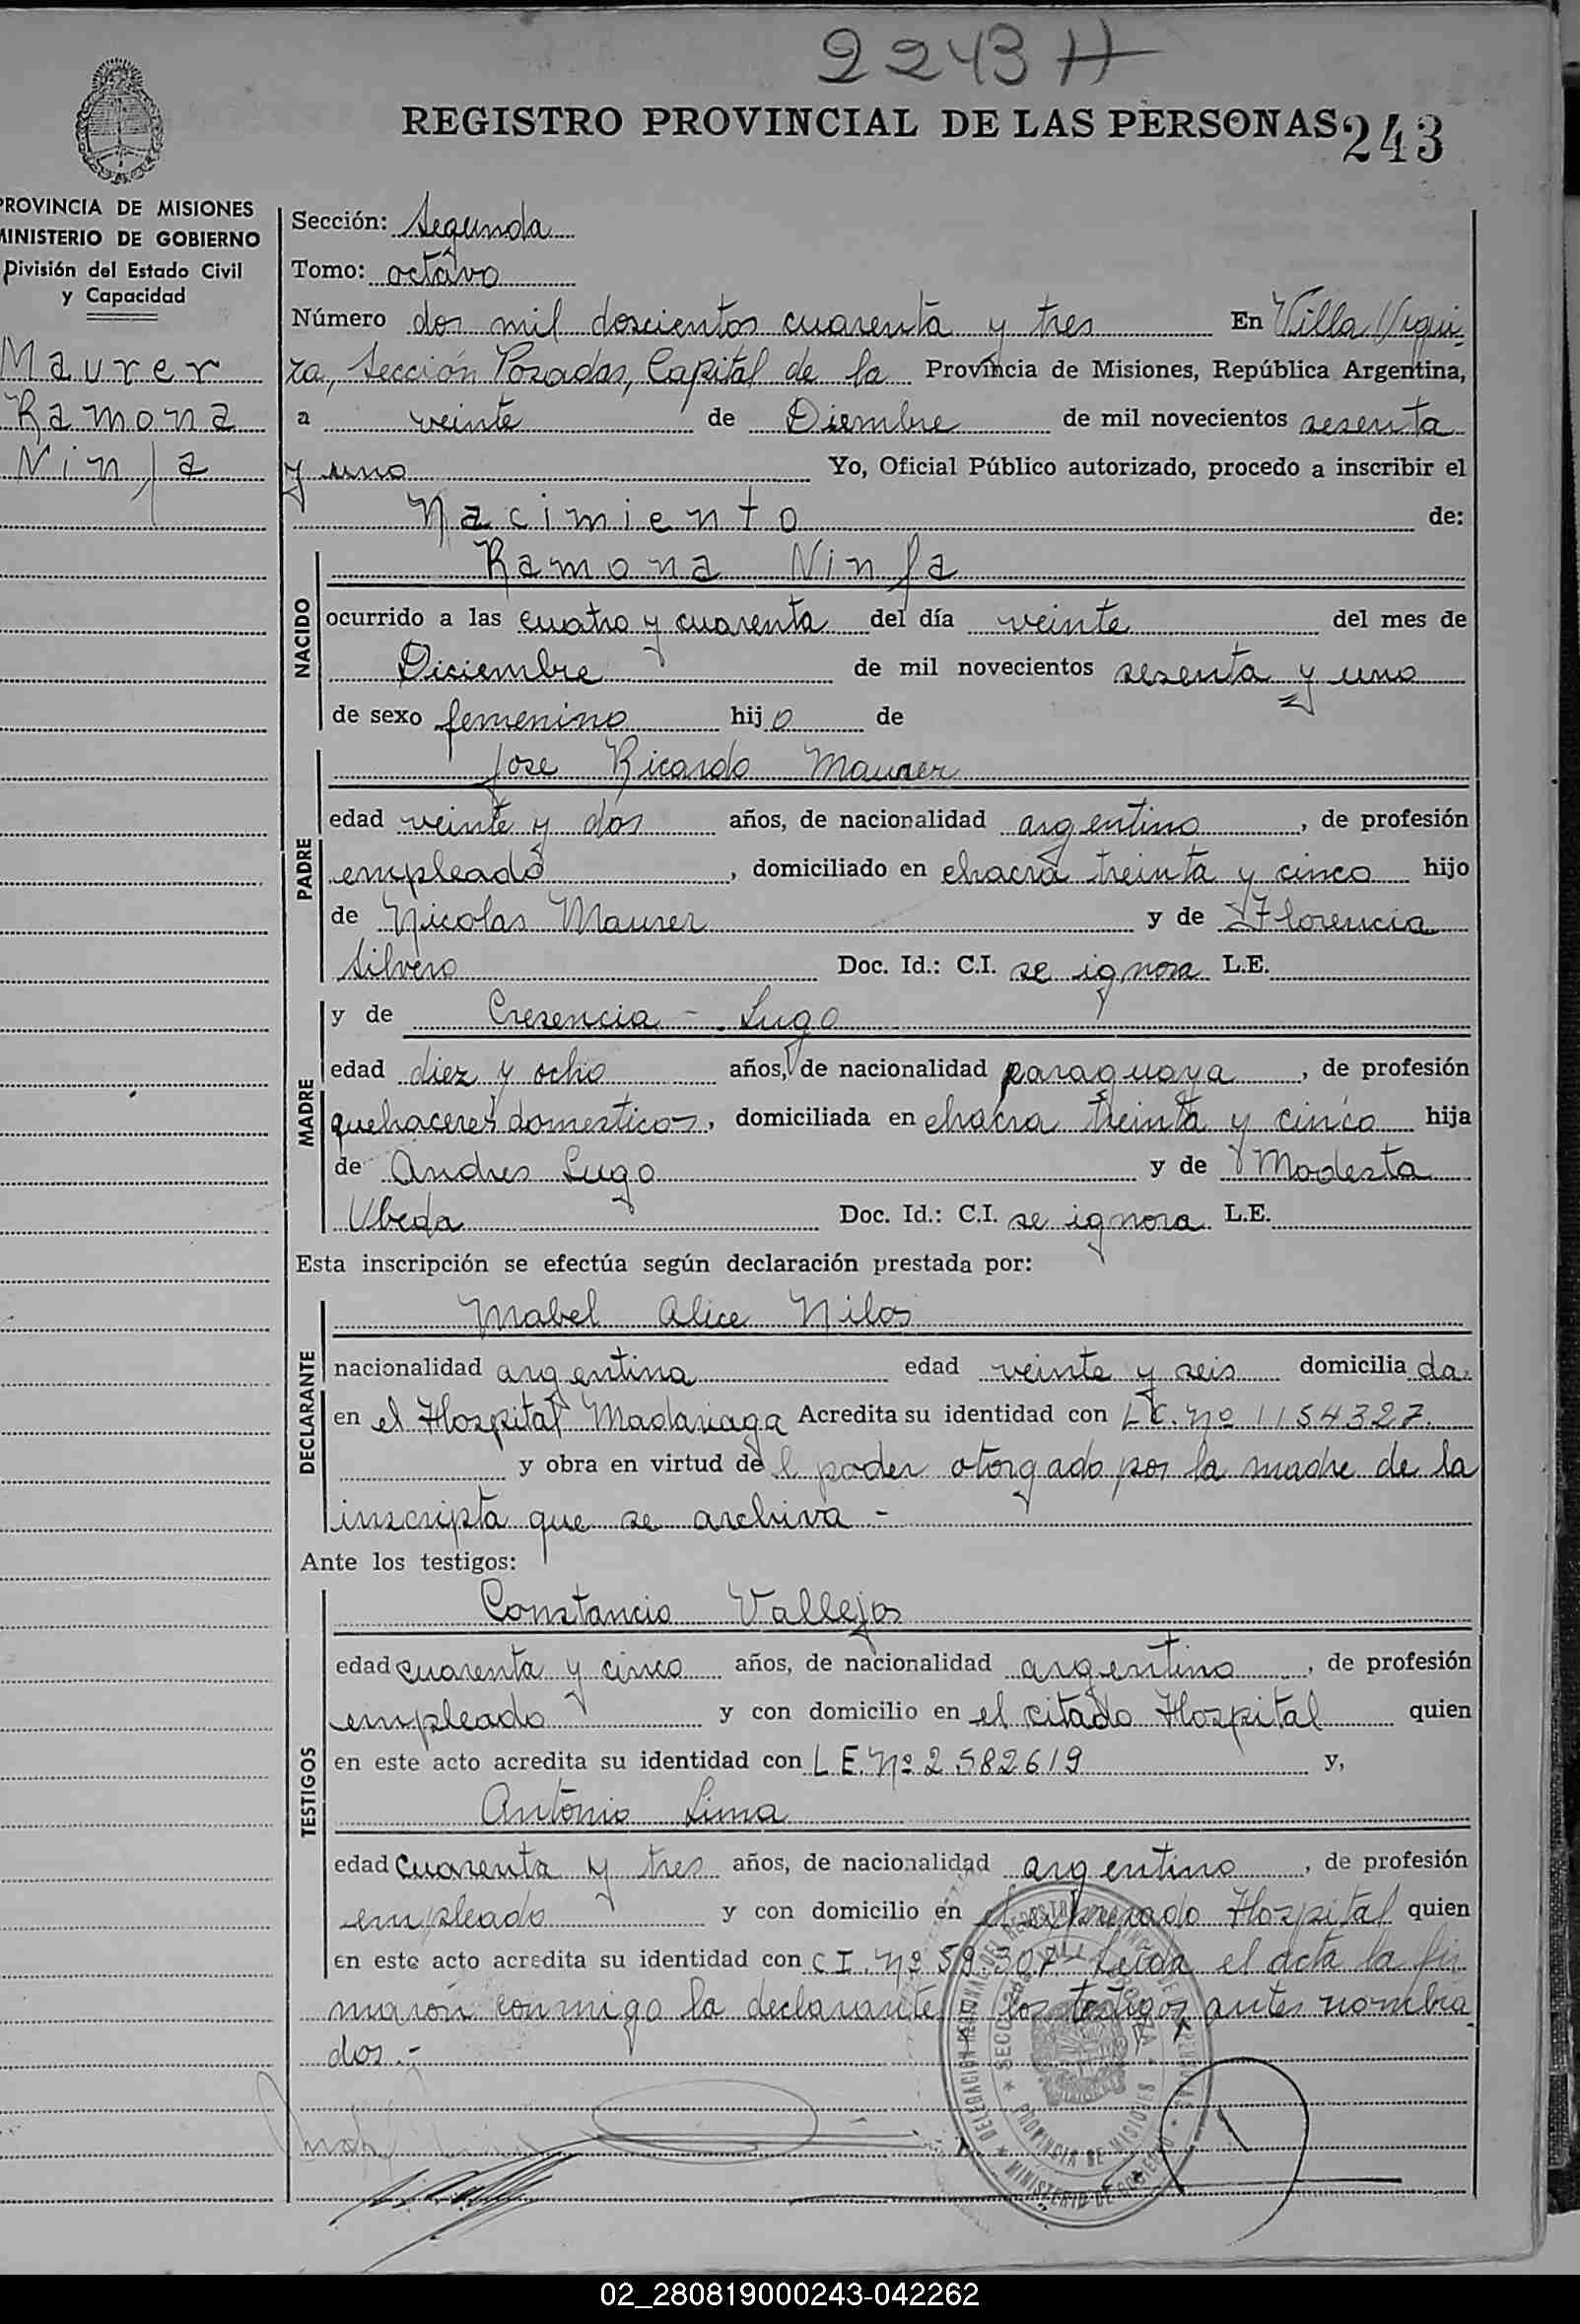 2243 H
REGISTRO PROVINCIAL DE LAS PERSONAS 243
PROVINCIA DE MISIONES
MINISTERIO DE GOBIERNO
División del Estado Civil
y Capacidad
Maurer
Ramona
Ninfa
Sección: Segunda
Tomo: octavo
Número dos mil doscientos cuarenta y tres En Villa Urqui-
za, Sección Posadas, Capital de la Provincia de Misiones, República Argentina,
a veinte de Diembre de mil novecientos sesenta
y uno Yo, Oficial Público autorizado, procedo a inscribir el
Nacimiento de:
NACIDO
Ramona Ninfa
ocurrido a las cuatro y cuarenta del día veinte del mes de
Diciembre de mil novecientos sesenta y uno
de sexo femenino hijo de
PADRE
Jose Ricardo Maurer
edad veinte y dos años, de nacionalidad argentino, de profesión
empleado, domiciliado en chacra treinta y cinco hijo
de Nicolas Maurer y de Florencia
Silvero Doc. Id.: C.I. se ignora L.E.
MADRE
y de Cresencia - Lugo
edad diez y ocho años, de nacionalidad paraguaya, de profesión
quehaceres domesticos, domiciliada en chacra treinta y cinco hija
de Andres Lugo y de Modesta
Ubeda Doc. Id.: C.I. se ignora L.E.
Esta inscripción se efectúa según declaración prestada por:
DECLARANTE
Mabel Alice Nilos
nacionalidad argentina edad veinte y seis domiciliada
en el Hospital Madariaga Acredita su identidad con L.C. Nº 1154327.
y obra en virtud del poder otorgado por la madre de la
inscripta que se archiva -
Ante los testigos:
TESTIGOS
Constancio Vallejos
edad cuarenta y cinco años, de nacionalidad argentino, de profesión
empleado y con domicilio en el citado Hospital quien
en este acto acredita su identidad con L E. Nº 2582619 y,
Antonio Lima
edad cuarenta y tres años, de nacionalidad argentino, de profesión
empleado y con domicilio en el expresado Hospital quien
en este acto acredita su identidad con C I. Nº 59.307- Leida el acta la fir
maron conmigo la declarante y los testigos antes nombra
dos.-
SECCION
PROVINCIA DE MISIONES
MINISTERIO DE GOBIERNO
02_280819000243-042262